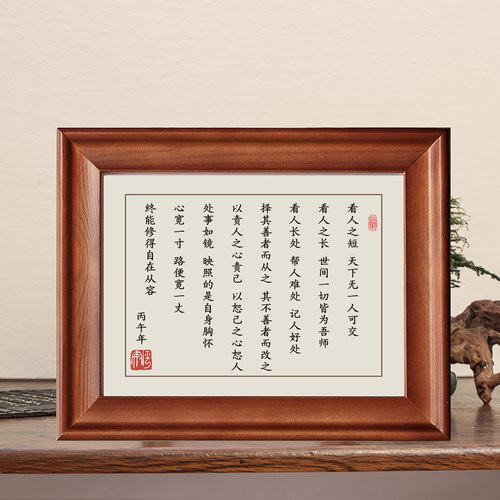 看人之短 天下无一人可交
看人之长 世间一切皆为吾师
看人长处 帮人难处 记人好处
择其善者而从之 其不善者而改之
以责人之心责己 以恕己之心恕人
处事如镜 映照的是自身胸怀
心宽一寸 路便宽一丈
终能修得自在从容
丙午年